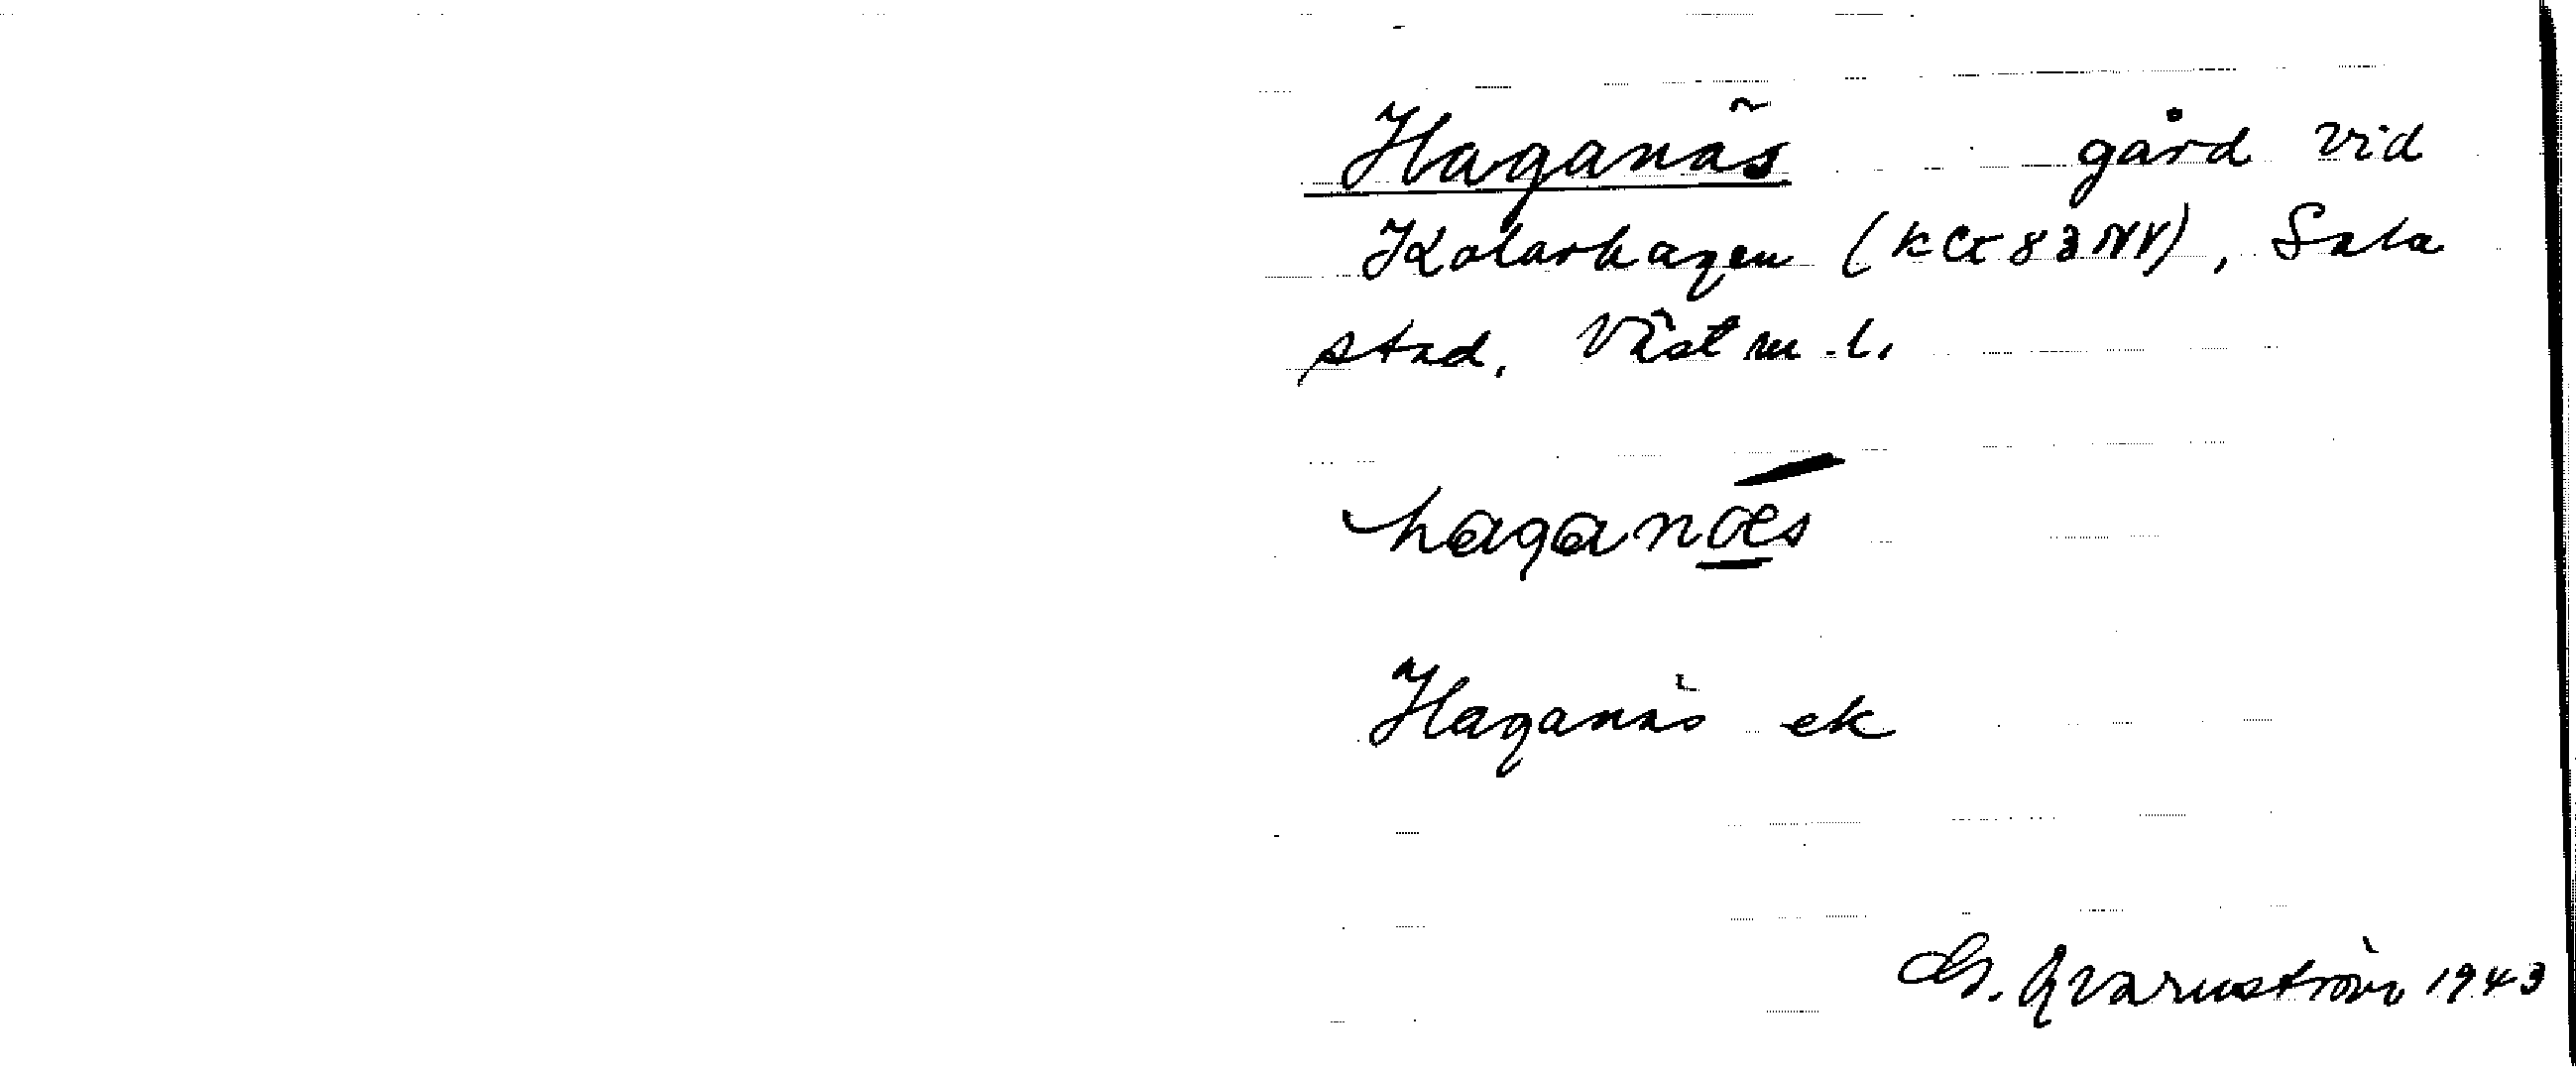 Haganäs gård vid
Kolarhagen (kct 83 NV), Sala
stad, Västm. l.
haganæs
Haganäs ek
G. Qvarnström 1943